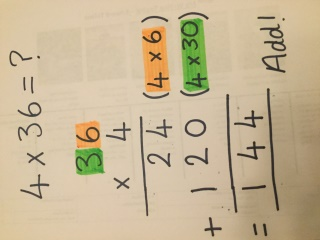 4 x 36 = ?
36
x 4
24 (4 x 6)
+ 120 (4 x 30)
= 144 Add!